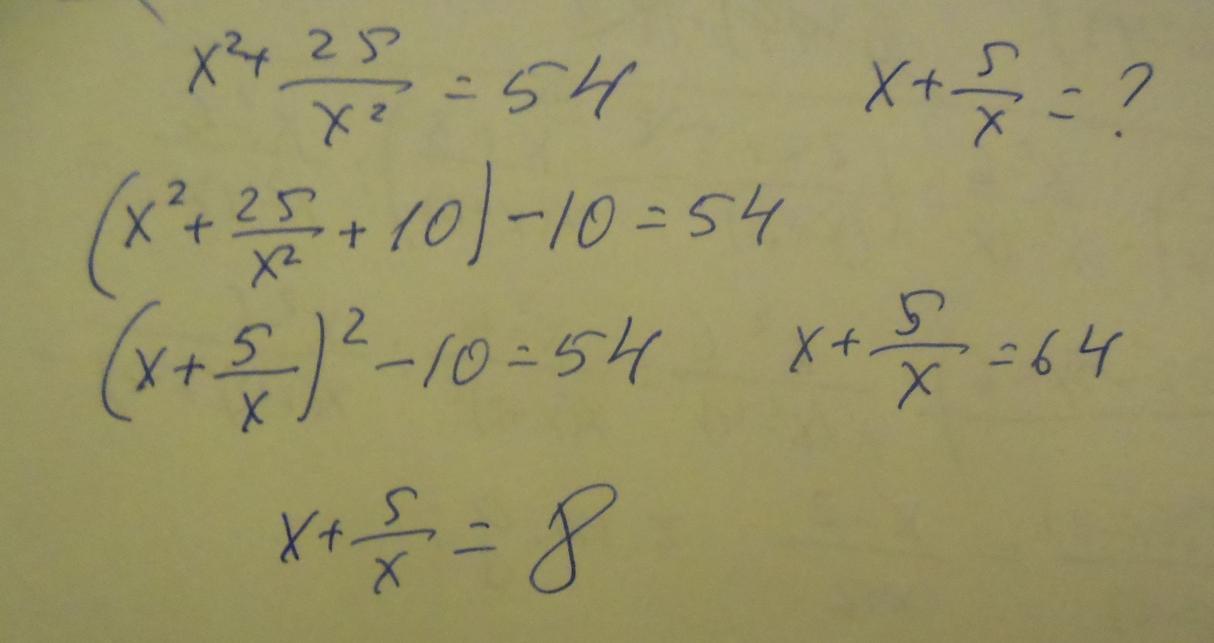 x² + 25/x² = 54    x + 5/x = ?
(x² + 25/x² + 10) - 10 = 54
(x + 5/x)² - 10 = 54    x + 5/x = 64
x + 5/x = 8